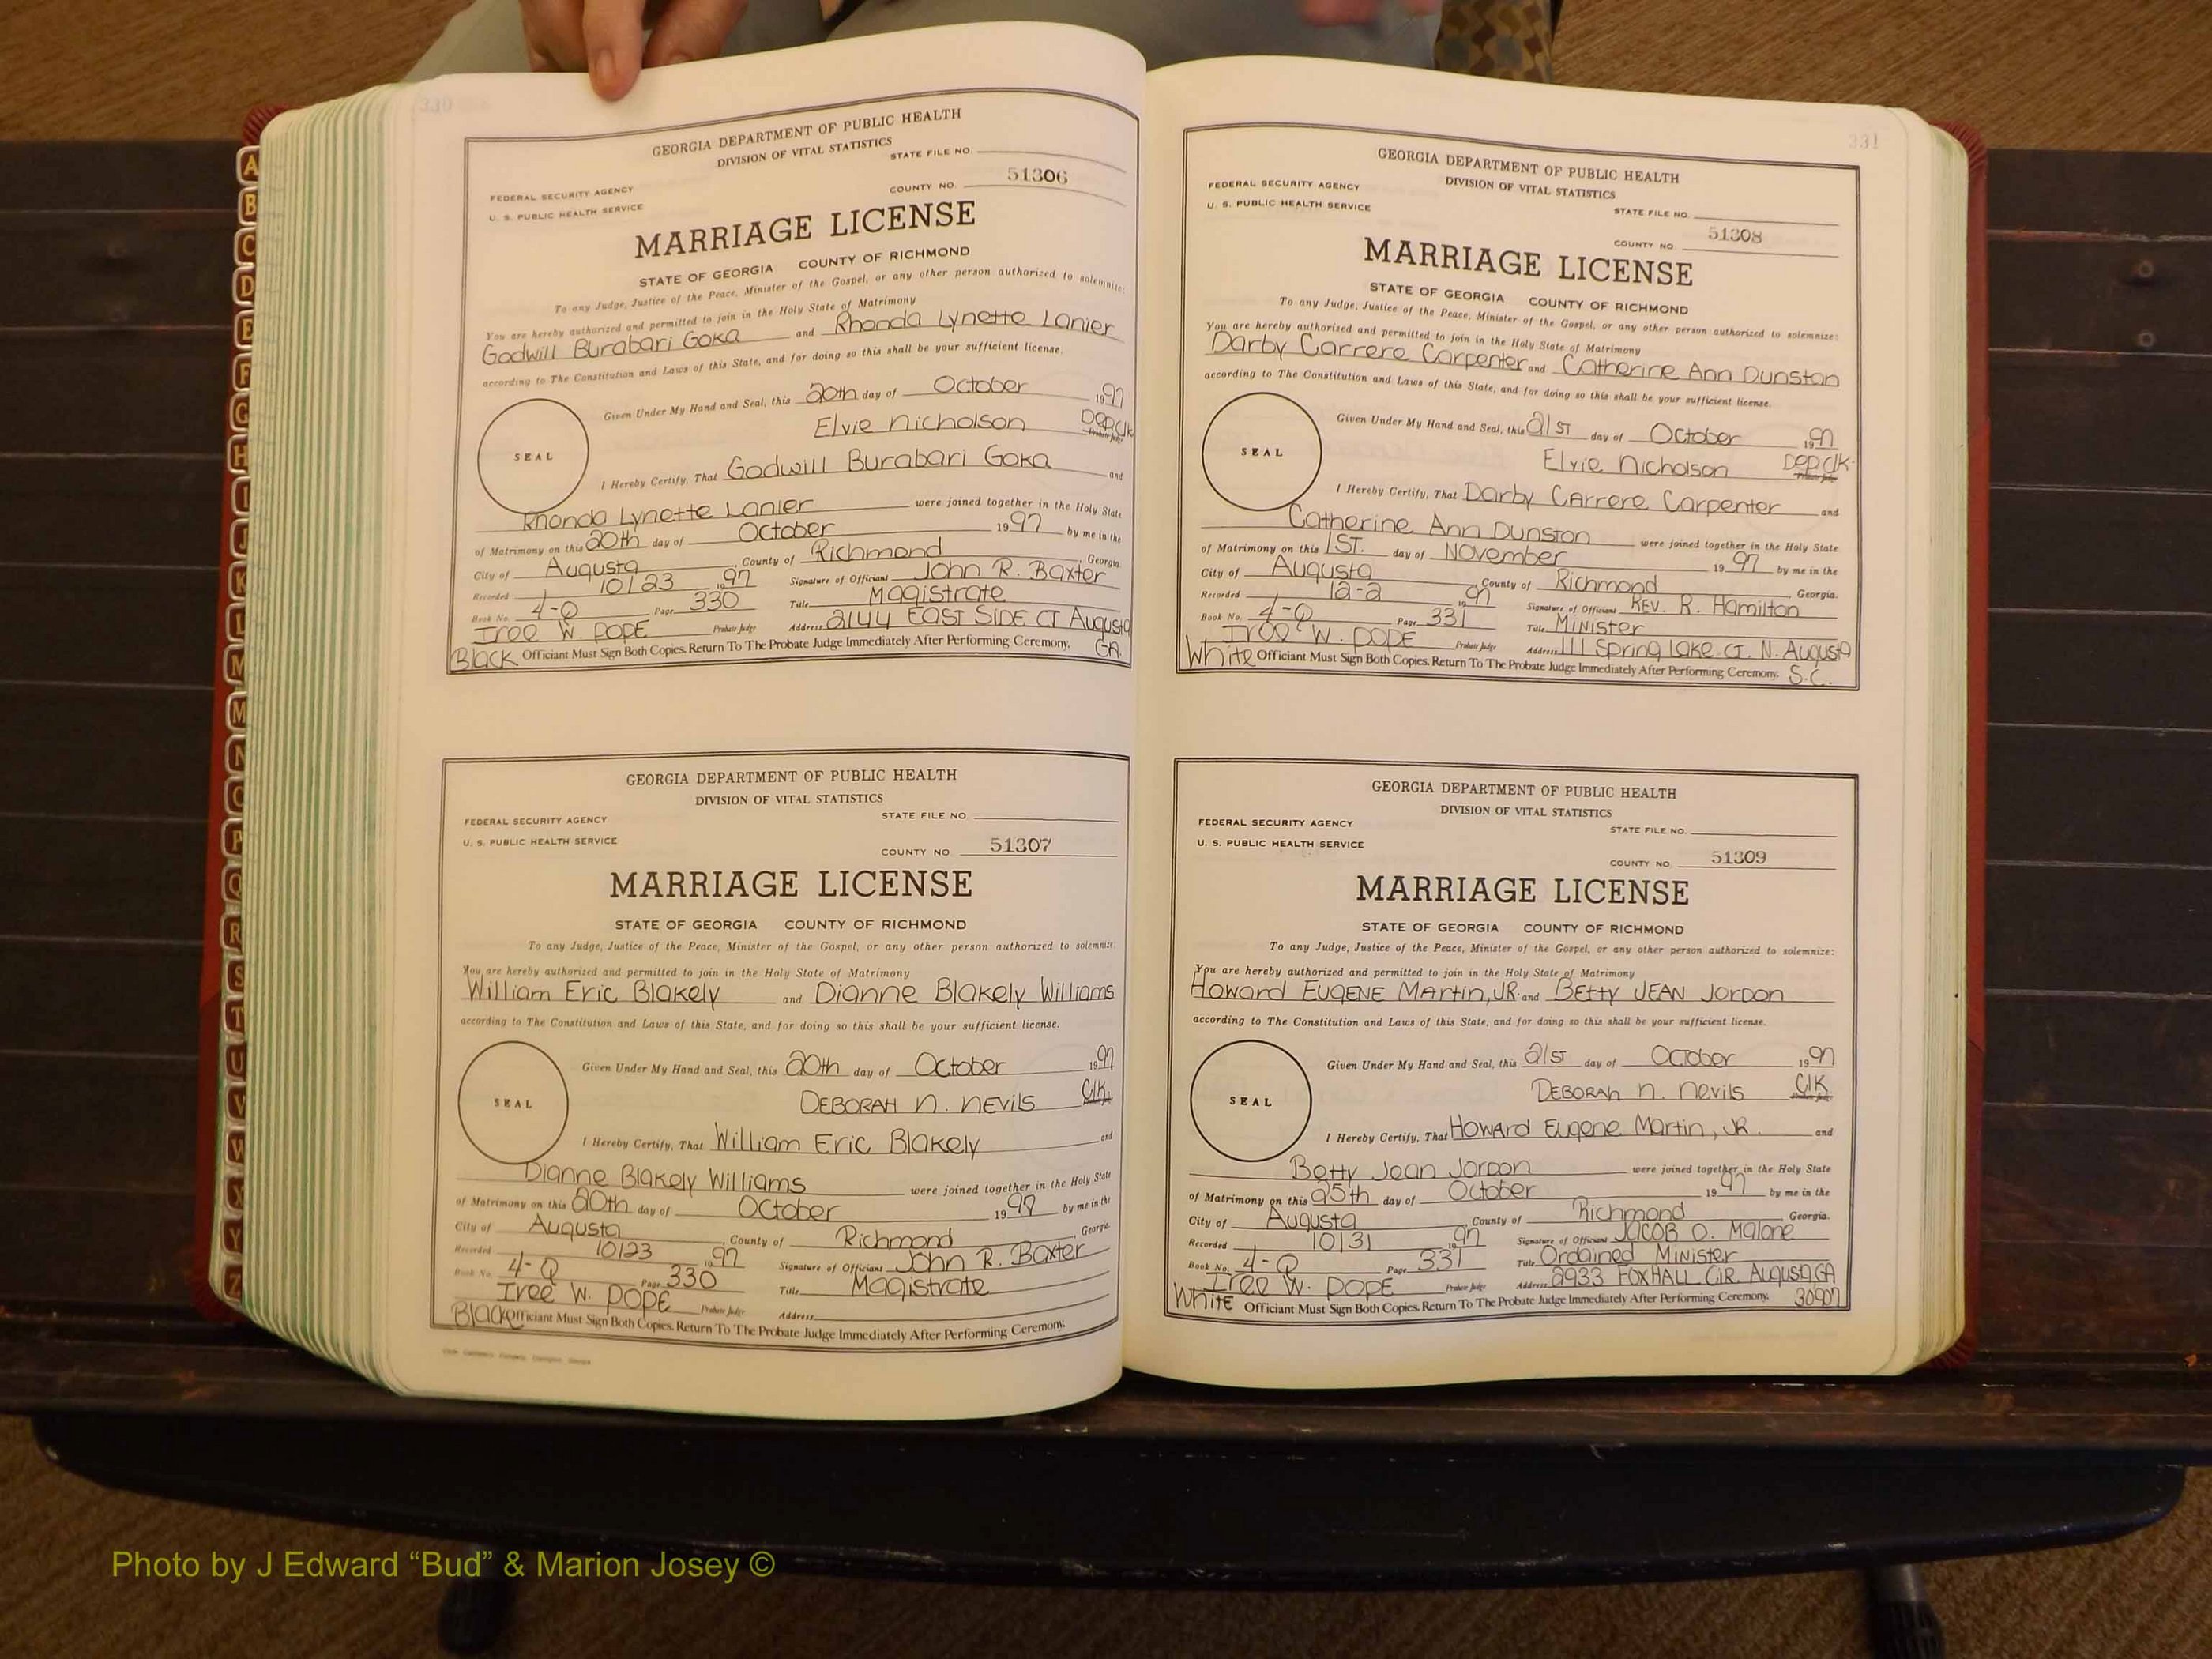 330
GEORGIA DEPARTMENT OF PUBLIC HEALTH
DIVISION OF VITAL STATISTICS
STATE FILE NO.
FEDERAL SECURITY AGENCY
COUNTY NO. 51306
U. S. PUBLIC HEALTH SERVICE
MARRIAGE LICENSE
STATE OF GEORGIA COUNTY OF RICHMOND
To any Judge, Justice of the Peace, Minister of the Gospel, or any other person authorized to solemnize:
You are hereby authorized and permitted to join in the Holy State of Matrimony
Godwill Burabari Goka and Rhonda Lynette Lanier
according to The Constitution and Laws of this State, and for doing so this shall be your sufficient license.
Given Under My Hand and Seal, this 20th day of October 1997
Elvie Nicholson Dep Clk
Probate Judge
SEAL
I Hereby Certify, That Godwill Burabari Goka and
Rhonda Lynette Lanier were joined together in the Holy State
of Matrimony on this 20th day of October 1997 by me in the
City of Augusta, County of Richmond, Georgia.
Recorded 10/23 1997 Signature of Officiant John R. Baxter
Book No. 4-Q Page 330 Title Magistrate
Iree W. POPE Probate Judge Address 2144 EAST SIDE CT Augusta
Black Officiant Must Sign Both Copies. Return To The Probate Judge Immediately After Performing Ceremony. GA.
GEORGIA DEPARTMENT OF PUBLIC HEALTH
DIVISION OF VITAL STATISTICS
STATE FILE NO
FEDERAL SECURITY AGENCY
U. S. PUBLIC HEALTH SERVICE
COUNTY NO. 51307
MARRIAGE LICENSE
STATE OF GEORGIA COUNTY OF RICHMOND
To any Judge, Justice of the Peace, Minister of the Gospel, or any other person authorized to solemnize:
You are hereby authorized and permitted to join in the Holy State of Matrimony
William Eric Blakely and Dianne Blakely Williams
according to The Constitution and Laws of this State, and for doing so this shall be your sufficient license.
Given Under My Hand and Seal, this 20th day of October 1997
DEBORAH N. NEVILS Clk.
SEAL
I Hereby Certify, That William Eric Blakely and
Dianne Blakely Williams were joined together in the Holy State
of Matrimony on this 20th day of October 1997 by me in the
City of Augusta, County of Richmond Georgia.
Recorded 10/23 1997 Signature of Officiant John R. Baxter
Book No. 4-Q Page 330 Title Magistrate
Iree W. POPE Probate Judge Address
Black Officiant Must Sign Both Copies. Return To The Probate Judge Immediately After Performing Ceremony.
331
GEORGIA DEPARTMENT OF PUBLIC HEALTH
DIVISION OF VITAL STATISTICS
FEDERAL SECURITY AGENCY
U. S. PUBLIC HEALTH SERVICE
STATE FILE NO.
COUNTY NO 51308
MARRIAGE LICENSE
STATE OF GEORGIA COUNTY OF RICHMOND
To any Judge, Justice of the Peace, Minister of the Gospel, or any other person authorized to solemnize:
You are hereby authorized and permitted to join in the Holy State of Matrimony
Darby Carrere Carpenter and Catherine Ann Dunston
according to The Constitution and Laws of this State, and for doing so this shall be your sufficient license.
Given Under My Hand and Seal, this 21st day of October 1997
Elvie Nicholson Dep Clk.
Probate Judge
SEAL
I Hereby Certify, That Darby Carrere Carpenter and
Catherine Ann Dunston were joined together in the Holy State
of Matrimony on this 1ST. day of November 1997 by me in the
City of Augusta, County of Richmond Georgia.
Recorded 12-2 1997 Signature of Officiant REV. R. Hamilton
Book No. 4-Q Page 331 Title Minister
Iree W. POPE Probate Judge Address 111 Spring Lake CT. N. Augusta
White Officiant Must Sign Both Copies. Return To The Probate Judge Immediately After Performing Ceremony. S.C.
GEORGIA DEPARTMENT OF PUBLIC HEALTH
DIVISION OF VITAL STATISTICS
FEDERAL SECURITY AGENCY
STATE FILE NO.
U. S. PUBLIC HEALTH SERVICE
COUNTY NO 51309
MARRIAGE LICENSE
STATE OF GEORGIA COUNTY OF RICHMOND
To any Judge, Justice of the Peace, Minister of the Gospel, or any other person authorized to solemnize:
You are hereby authorized and permitted to join in the Holy State of Matrimony
Howard EUGENE Martin, JR. and BEtty JEAN Jordon
according to The Constitution and Laws of this State, and for doing so this shall be your sufficient license.
Given Under My Hand and Seal, this 21st day of October 1997
DEBORAH N. Nevils Clk
SEAL
I Hereby Certify, That Howard Eugene Martin, JR. and
Betty Jean Jordon were joined together in the Holy State
of Matrimony on this 25th day of October 1997 by me in the
City of Augusta, County of Richmond Georgia.
Recorded 10/31 1997 Signature of Officiant JACOB O. Malone
Book No. 4-Q Page 331 Title Ordained Minister
Iree W. POPE Probate Judge Address 2933 FOXHALL CIR. AUGUSTA GA
White Officiant Must Sign Both Copies. Return To The Probate Judge Immediately After Performing Ceremony. 30907
A
B
C
D
E
F
G
H
I
J
K
L
M
M
N
O
P
Q
R
S
T
U
V
W
X
Y
Z
Photo by J Edward “Bud” & Marion Josey ©